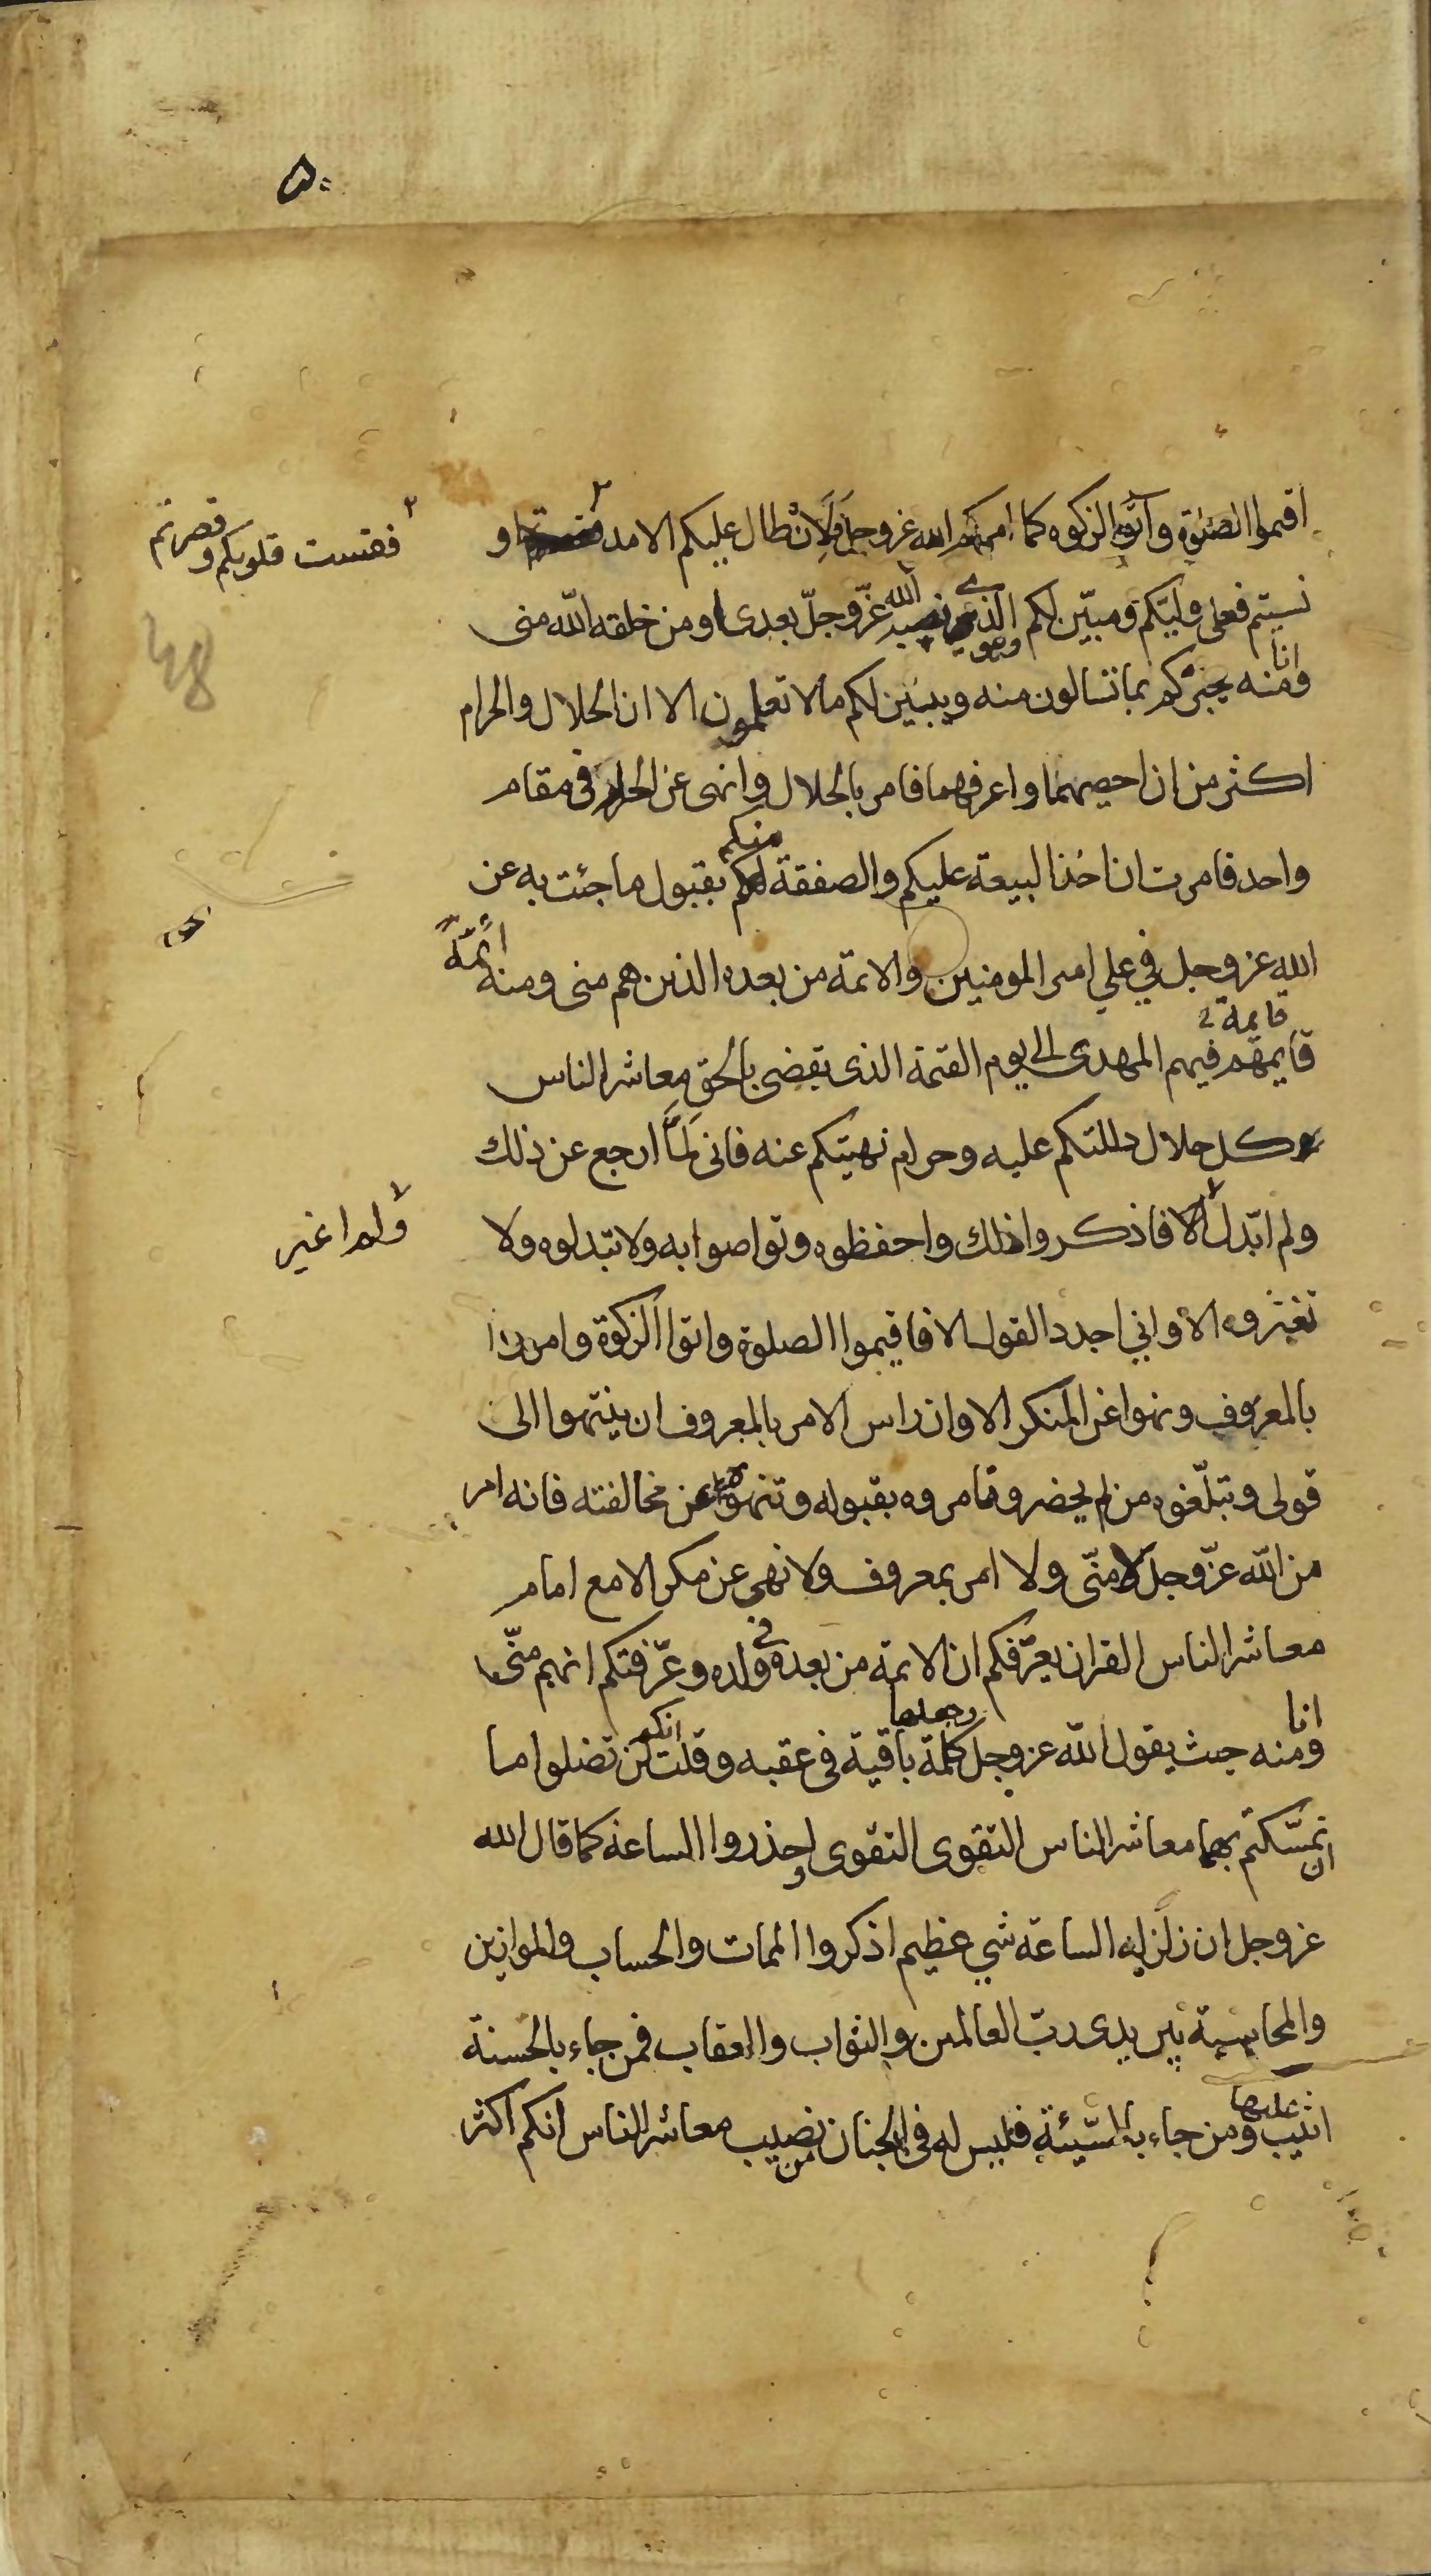 ۵۰
اقیموا الصلوة وآتوا الزکوه کما امرکم الله عز وجل فلان طال علیکم الامد و
فقست قلوبکم وقصرتم
نسیتم فعلی ولیکم ومبین لکم الذی نصبه الله عزّ وجلّ بعدی ومن خلقه الله منی
وانا منه یخبرکم بما تسالون منه ویبین لکم ما لا تعلمون الا ان الحلال والحرام
اکثر من ان احصیهما واعرفهما فامر بالحلال وانهی عن الحرام فی مقام
واحد فامرت ان اخذ البیعة علیکم والصفقة منکم بقبول ما جئت به عن
الله عز وجل فی علی امیر المومنین والائمة من بعده الذین هم منی ومنه ائمّة
قایمة
قایمهم فیهم المهدی الی یوم القیمة الذی یقضی بالحق معاشر الناس
کل حلال دللتکم علیه وحرام نهیتکم عنه فانی لمّا ارجع عن ذلک
ولم ابدّل الا فاذکروا ذلک واحفظوه وتواصوا به ولا تبدلوه ولا
ولم اغیر
تغیروه الا وانی اجدد القول الا فاقیموا الصلوة واتوا الزکوة وامروا
بالمعروف ونهوا عن المنکر الا وان راس الامر بالمعروف ان ینتهوا الی
قولی وتبلّغوه من لم یحضر وتامروه بقبوله وتنهوه عن مخالفته فانه امر
من الله عزّ وجل ومنّی ولا امر بمعروف ولا نهی عن منکر الا مع امام
معاشر الناس القران یعرّفکم ان الائمة من بعده فی ولده وعرّفتکم انهم منّی
وانا منه حیث یقول الله عز وجل وجعلها کلمة باقیة فی عقبه وقلت انکم لن تضلوا ما
ان تمسّکتم بهما معاشر الناس التقوی التقوی واحذروا الساعة کما قال الله
عز وجل ان زلزله الساعة شی عظیم اذکروا الممات والحساب والموازین
والمحاسبة بین یدی ربّ العالمین والثواب والعقاب فمن جاء بالحسنة
اثیب علیها ومن جاء بالسّیئة فلیس له فی الجنان من نصیب معاشر الناس انکم اکثر